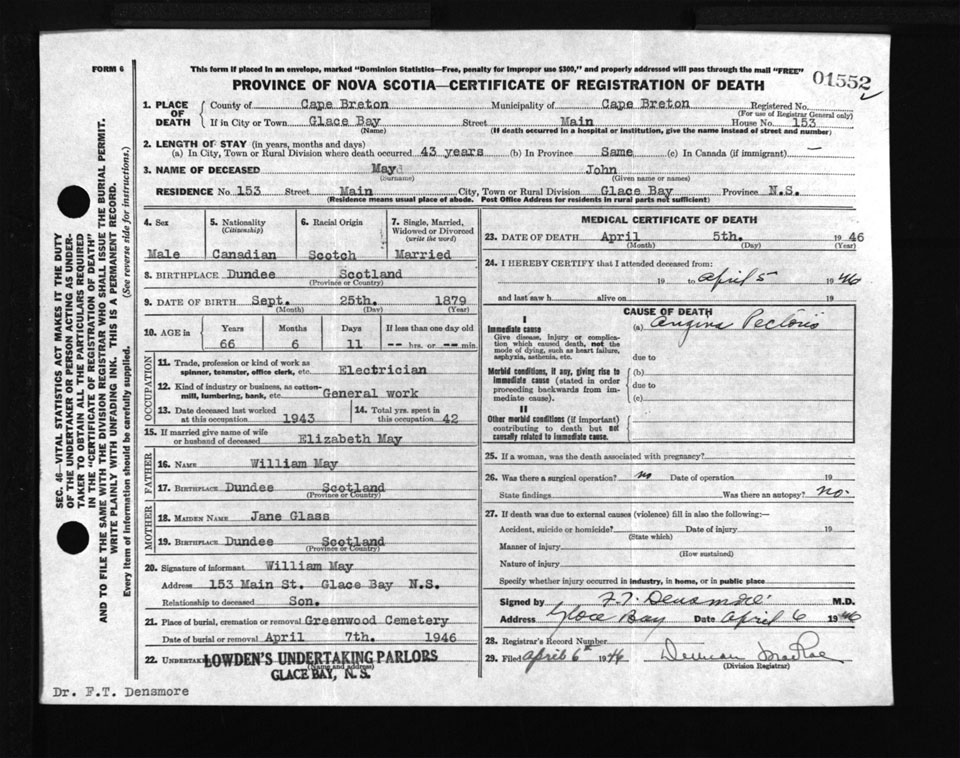 FORM 6
This form if placed in an envelope, marked "Dominion Statistics—Free, penalty for improper use $300," and properly addressed will pass through the mail "FREE"
PROVINCE OF NOVA SCOTIA—CERTIFICATE OF REGISTRATION OF DEATH
01552
1. PLACE OF DEATH
County of Cape Breton Municipality of Cape Breton Registered No.
(For use of Registrar General only)
If in City or Town Glace Bay Street Main House No. 153
(Name) (If death occurred in a hospital or institution, give the name instead of street and number)
2. LENGTH OF STAY (in years, months and days)
(a) In City, Town or Rural Division where death occurred 43 years (b) In Province Same (c) In Canada (if immigrant) —
3. NAME OF DECEASED May John
(Surname) (Given name or names)
RESIDENCE No 153 Street Main City, Town or Rural Division Glace Bay Province N.S.
(Residence means usual place of abode. Post Office Address for residents in rural parts not sufficient)
4. Sex
Male
5. Nationality
(Citizenship)
Canadian
6. Racial Origin
Scotch
7. Single, Married, Widowed or Divorced
(write the word)
Married
8. BIRTHPLACE Dundee Scotland
(Province or Country)
9. DATE OF BIRTH Sept. 25th. 1879
(Month) (Day) (Year)
10. AGE in
Years Months Days If less than one day old
66 6 11 -- hrs. or -- min.
OCCUPATION
11. Trade, profession or kind of work as
spinner, teamster, office clerk, etc. Electrician
12. Kind of industry or business, as cotton-
mill, lumbering, bank, etc. General work
13. Date deceased last worked
at this occupation 1943
14. Total yrs. spent in
this occupation 42
15. If married give name of wife
or husband of deceased Elizabeth May
FATHER
16. NAME William May
17. BIRTHPLACE Dundee Scotland
(Province or Country)
MOTHER
18. MAIDEN NAME Jane Glass
19. BIRTHPLACE Dundee Scotland
(Province or Country)
20. Signature of informant William May
Address 153 Main St. Glace Bay N.S.
Relationship to deceased Son.
21. Place of burial, cremation or removal Greenwood Cemetery
Date of burial or removal April 7th. 1946
22. UNDERTAKER LOWDEN'S UNDERTAKING PARLORS
(Name and address)
GLACE BAY, N. S.
MEDICAL CERTIFICATE OF DEATH
23. DATE OF DEATH April 5th. 1946
(Month) (Day) (Year)
24. I HEREBY CERTIFY that I attended deceased from:
19 to April 5 1946
and last saw h alive on 19
CAUSE OF DEATH
I
Immediate cause
Give disease, injury or complica-
tion which caused death, not the
mode of dying, such as heart failure,
asphyxia, asthenia, etc.
(a) Angina Pectoris
due to
Morbid conditions, if any, giving rise to
immediate cause (stated in order
proceeding backwards from im-
mediate cause).
(b)
due to
(c)
II
Other morbid conditions (if important)
contributing to death but not
causally related to immediate cause.
25. If a woman, was the death associated with pregnancy?
26. Was there a surgical operation? no Date of operation 19
State findings Was there an autopsy? no.
27. If death was due to external causes (violence) fill in also the following:—
Accident, suicide or homicide? Date of injury 19
(State which)
Manner of injury
(How sustained)
Nature of injury
Specify whether injury occurred in industry, in home, or in public place
Signed by F. T. Densmore M.D.
Address Glace Bay Date April 6 1946
28. Registrar's Record Number
29. Filed April 6th 1946 Duncan MacRae
(Division Registrar)
SEC. 46—VITAL STATISTICS ACT MAKES IT THE DUTY
OF THE UNDERTAKER OR PERSON ACTING AS UNDER-
TAKER TO OBTAIN ALL THE PARTICULARS REQUIRED
IN THE "CERTIFICATE OF REGISTRATION OF DEATH"
AND TO FILE THE SAME WITH THE DIVISION REGISTRAR WHO SHALL ISSUE THE BURIAL PERMIT.
WRITE PLAINLY WITH UNFADING INK. THIS IS A PERMANENT RECORD.
Every item of information should be carefully supplied. (See reverse side for instructions.)
Dr. F.T. Densmore